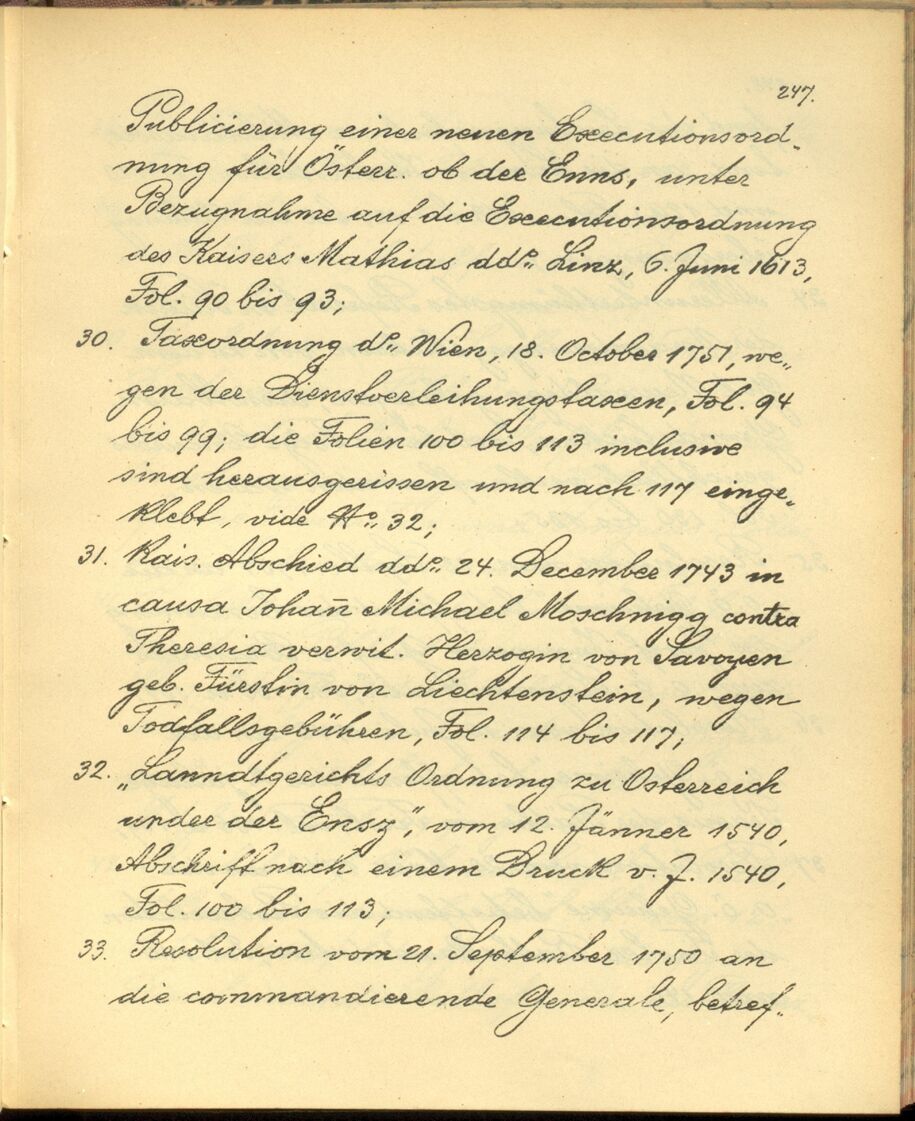 247.
Publicierung einer neuen Executionsord-
nung für Österr. ob der Enns, unter
Bezugnahme auf die Executionsordnung
des Kaisers Mathias ddo. Linz, 6. Juni 1613,
Fol. 90 bis 93;
30. Taxordnung do. Wien, 18. October 1751, we-
gen der Dienstverleihungstaxen, Fol. 94
bis 99; die Folien 100 bis 113 inclusive
sind herausgerissen und nach 117 einge-
klebt, vide No. 32;
31. Kais. Abschied ddo. 24. December 1743 in
causa Johan̄ Michael Moschnigg contra
Theresia verwit. Herzogin von Savoyen
geb. Fürstin von Liechtenstein, wegen
Todfallsgebühren, Fol. 114 bis 117;
32. „Lanndtgerichts Ordnung zu Osterreich
under der Ensz", vom 12. Jänner 1540,
Abschrift nach einem Druck v. J. 1540,
Fol. 100 bis 113;
33. Resolution vom 21. September 1750 an
die commandierende Generale, betref-